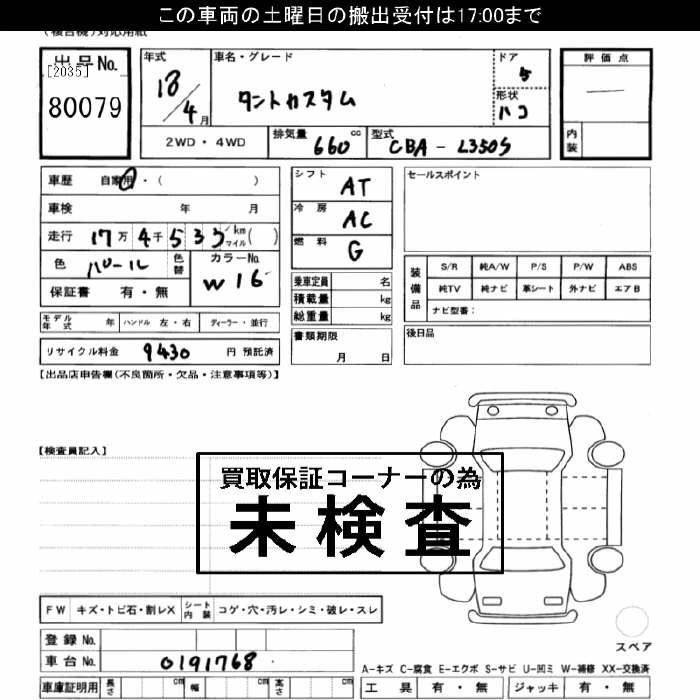 この車両の土曜日の搬出受付は17:00まで
(複合機)対応用紙
出品No.
[2035]
80079
年式
18/4月
車名・グレード
タントカスタム
ドア
5
形状
ハコ
評価点
—
内装
2WD・4WD
排気量 660 cc
型式 CBA-L350S
車歴 自家用・( )
車検 年 月
走行 17万4千533 km マイル( )
色 パール
色替
カラーNo.
W16
保証書 有・無
シフト AT
冷房 AC
燃料 G
乗車定員 名
積載量 kg
総重量 kg
セールスポイント
装備品
S/R 純A/W P/S P/W ABS
純TV 純ナビ 革シート 外ナビ エアB
ナビ型番:
モデル年式 年 ハンドル 左・右 ディーラー・並行
リサイクル料金 9430 円 預託済
書類期限
月 日
後日品
【出品店申告欄(不良箇所・欠品・注意事項等)】
【検査員記入】
買取保証コーナーの為
未検査
FW キズ・トビ石・割レX シート内装 コゲ・穴・汚レ・シミ・破レ・スレ
登録No.
車台No. 0191768
スペア
車庫証明用 長さ cm 幅 cm 高さ cm
A-キズ C-腐食 E-エクボ S-サビ U-凹ミ W-補修 XX-交換済
工具 有・無 ジャッキ 有・無